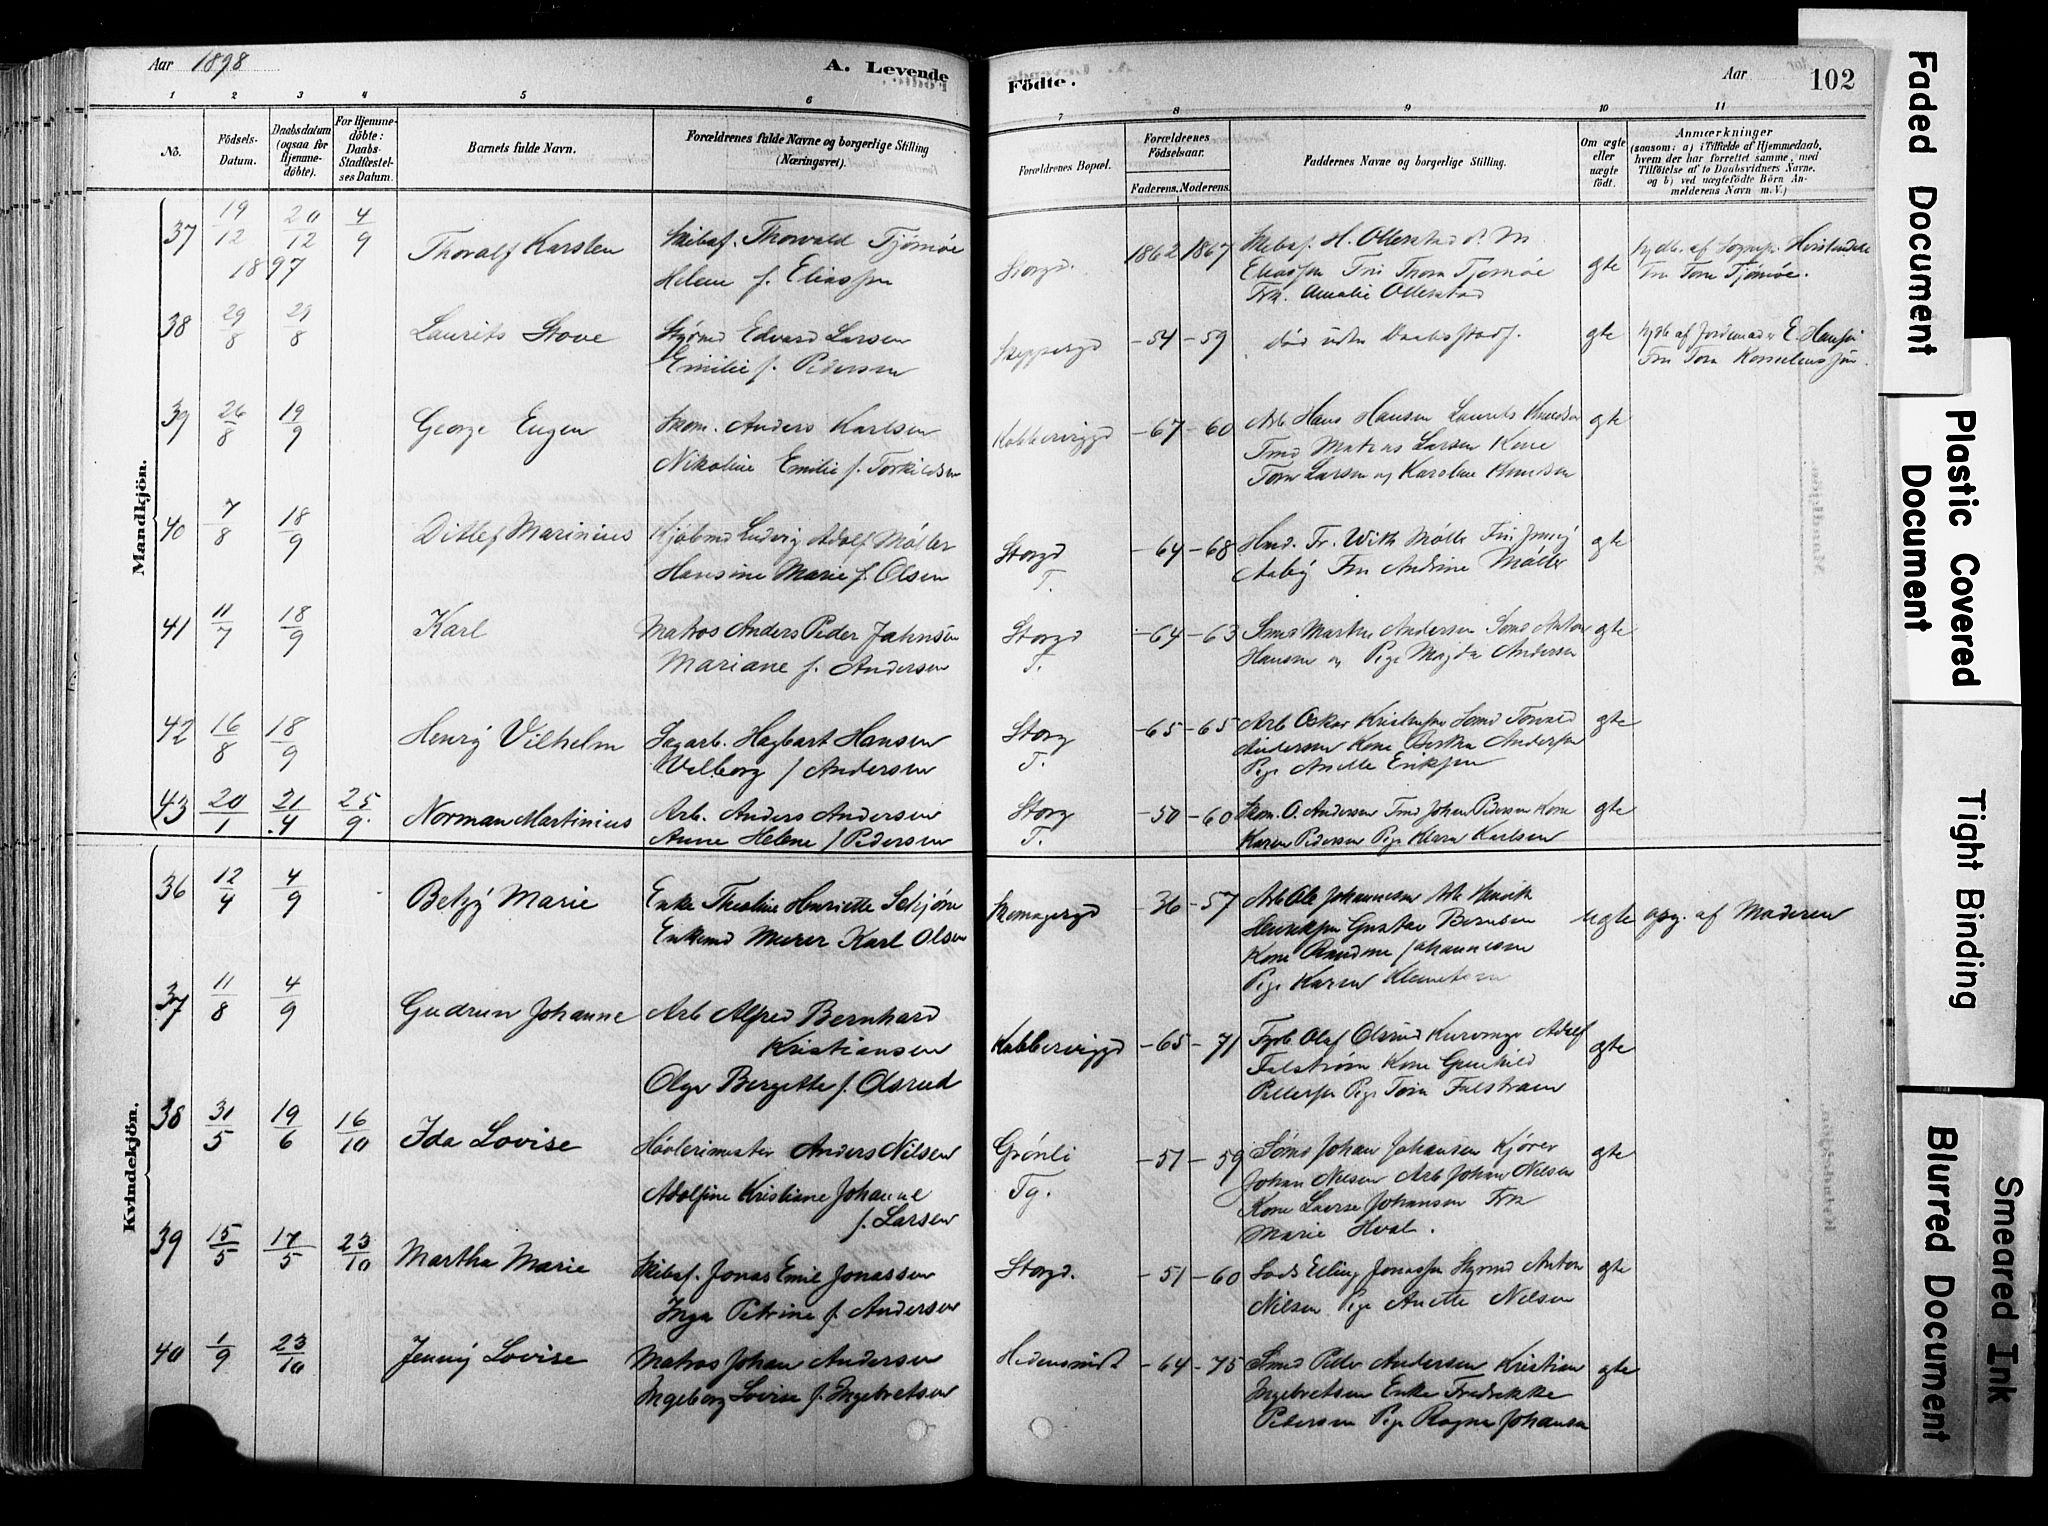 Aar 1898
A. Levende
Födte.
Aar
102
1 2 3 4 5 6 7 8 9 10 11
No.
Födsels-Datum.
Daabsdatum (ogsaa for Hjemmedöbte).
For Hjemmedöbte: Daabs-Stadfæstelses Datum.
Barnets fulde Navn.
Forældrenes fulde Navne og borgerlige Stilling (Næringsvei).
Forældrenes Bopæl.
Forældrenes Födselsaar.
Faderens. Moderens.
Faddernes Navne og borgerlige Stilling.
Om ægte eller uægte födt.
Anmærkninger
(saasom: a) i Tilfælde af Hjemmedaab, hvem der har forrettet samme, med Tilföielse af to Daabsvidners Navne. og b) ved uægtefödte Börn Anmelderens Navn m.V.)
Mandkjön.
37 19/12 1897 20/12 4/9 Thoralf Karsten
Skibsf. Thorvald Tjømøe
Helene f. Eliassen
Storgd. 1862 1867
Skibsf. H. Ollerstad
Eliassen Fru Thora Tjømøe
Frk. Amalie Ollerstad
gte
Fru Tora Tjømøe.
38 29/8 29/8 Laurits Stove
Styrmd Edvard Larsen
Emilie f. Pedersen
Skippergd -54 -59
død uden Daabsstadf.
gte
hjdb. af Jordemoder E. Hansen
Fru Tora Kornelius
39 26/8 19/9 George Eugen
Skom. Anders Karlsen
Nikoline Emilie f. Torkildsen
Kobberviggd -67 -60
Arb Hans Hansen Laurits Knudsen
Tmd Mathias Larsen Kone
Tora Larsen og Karoline Knudsen
gte
40 7/8 18/9 Ditlef Marinius
Kjøbmd Ludvig Adolf Møller
Hansine Marie f. Olsen
Storgd
T.
-64 -68
Hmd. Fr. With Møller Fru Jenny
Aaby Fru Andrine Møller
gte
41 11/7 18/9 Karl
Matros Anders Peder Jahnsen
Mariane f. Andersen
Storgd
T.
-64 -63
Smd Martin Andersen Smd Anton
Hansen og Pige Magda Andersen
gte
42 16/8 18/9 Henry Vilhelm
Sagarb. Hagbart Hansen
Valborg f Andersen
Storg
T.
-65 -65
Arb Oskar Kristensen Smd Torvald
Andersen Kone Bertha Andersen
Pige Anette Eriksen
gte
43 20/1 21/4 25/9 Norman Martinius
Arb. Anders Andersen
Anne Helene f Pedersen
Storg
T.
-50 -60
Skom. O. Andersen Tmd Johan Pedersen Kone
Karen Pedersen Pige Klara Karlsen
gte
Kvindekjön.
36 12/4 4/9 Betzy Marie
Enke Thealine Henriette Schjøne
Enkemd Murer Karl Olsen
Skomagergd -36 -57
Arb Ole Johannesen Arb Henrik
Henriksen Gustav Berntsen
Kone Randine Johannesen
Pige Karen Klemetsen
uegte
opg. af Moderen
37 11/8 4/9 Gudrun Johanne
Arb Alfred Bernhard
Kristiansen
Olga Bergette f. Olsrud
Kobbervigd -65 -71
Fyrb Olaf Olsrud Kurvmg. Adolf
Falstrøm Kone Gunhild
Pettersen Pige Tora Falstrøm
gte
38 31/5 19/6 16/10 Ida Lovise
Høvlerimester Anders Nilsen
Adolfine Kristiane Johanne
f. Larsen
Grønli
Tg.
-51 -59
Sømd Johan Johansen Kjører
Johan Nielsen Arb Johan Nilsen
Kone Lovise Johansen Frk
Marie Hval.
gte
39 15/5 17/5 23/10 Martha Marie
Skibsf. Jonas Emil Jonassen
Inga Petrine f. Andersen
Storgd. -51 -60
Lods Elling Jonassen Styrmd Anton
Nilsen Pige Anette Nilsen
gte
40 1/9 23/10 Jenny Lovise
Matros Johan Andersen
Ingeborg Lovise f. Ingebretsen
-64 -75
Smd Peter Andersen Kristian
Ingebretsen Enke Fredrikke
Petersen Pige Ragna Johansen
gte
Faded Document
Plastic Covered Document
Tight Binding
Blurred Document
Smeared Ink